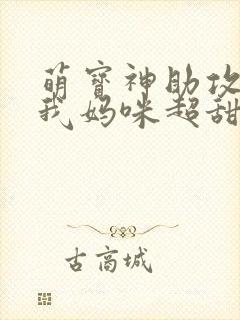 萌宝神助攻
我妈咪超甜
古高城